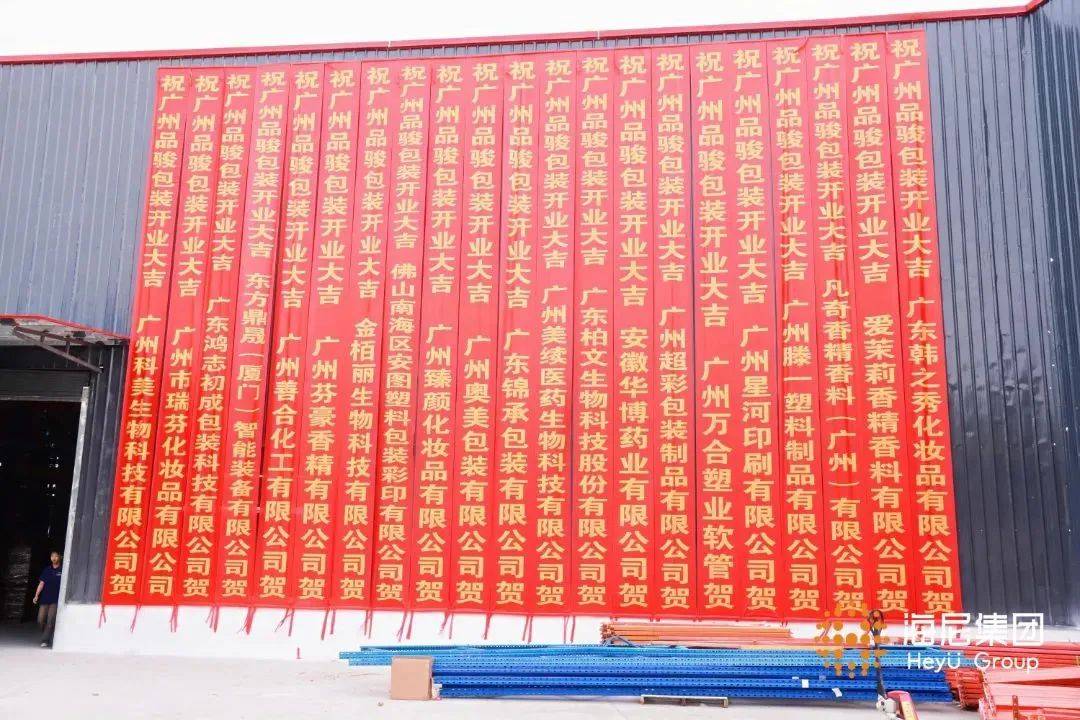 祝广州品骏包装开业大吉 广州科美生物科技有限公司贺
祝广州品骏包装开业大吉 广州市瑞芬化妆品有限公司
祝广州品骏包装开业大吉 广东鸿志初成包装科技有限公司贺
祝广州品骏包装开业大吉 东方鼎晟（厦门）智能装备有限公司贺
祝广州品骏包装开业大吉 广州善合化工有限公司贺
祝广州品骏包装开业大吉 广州芬豪香精有限公司贺
祝广州品骏包装开业大吉 金栢丽生物科技有限公司贺
祝广州品骏包装开业大吉 佛山南海区安图塑料包装彩印有限公司贺
祝广州品骏包装开业大吉 广州臻颜化妆品有限公司贺
祝广州品骏包装开业大吉 广州奥美包装有限公司贺
祝广州品骏包装开业大吉 广东锦承包装有限公司贺
祝广州品骏包装开业大吉 广州美续医药生物科技有限公司贺
祝广州品骏包装开业大吉 广东柏文生物科技股份有限公司贺
祝广州品骏包装开业大吉 安徽华博药业有限公司贺
祝广州品骏包装开业大吉 广州超彩包装制品有限公司贺
祝广州品骏包装开业大吉 广州万合塑业软管贺
祝广州品骏包装开业大吉 广州星河印刷有限公司贺
祝广州品骏包装开业大吉 广州滕一塑料制品有限公司贺
祝广州品骏包装开业大吉 凡奇香精香料（广州）有限公司贺
祝广州品骏包装开业大吉 爱茉莉香精香料有限公司贺
祝广州品骏包装开业大吉 广东韩之秀化妆品有限公司贺
集团
HeYü Group